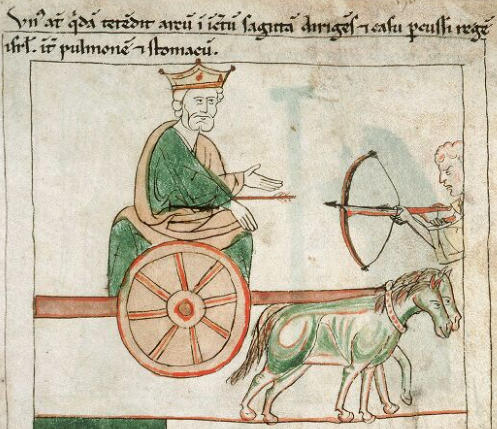 Vnꝰ aт̄ q̇dā tetēdit arcū ī īc̄tū sagittā dirigēs ⁊ casu ꝑcussit regē
isrl̄. it̄ pulmonē ⁊ stomacū.